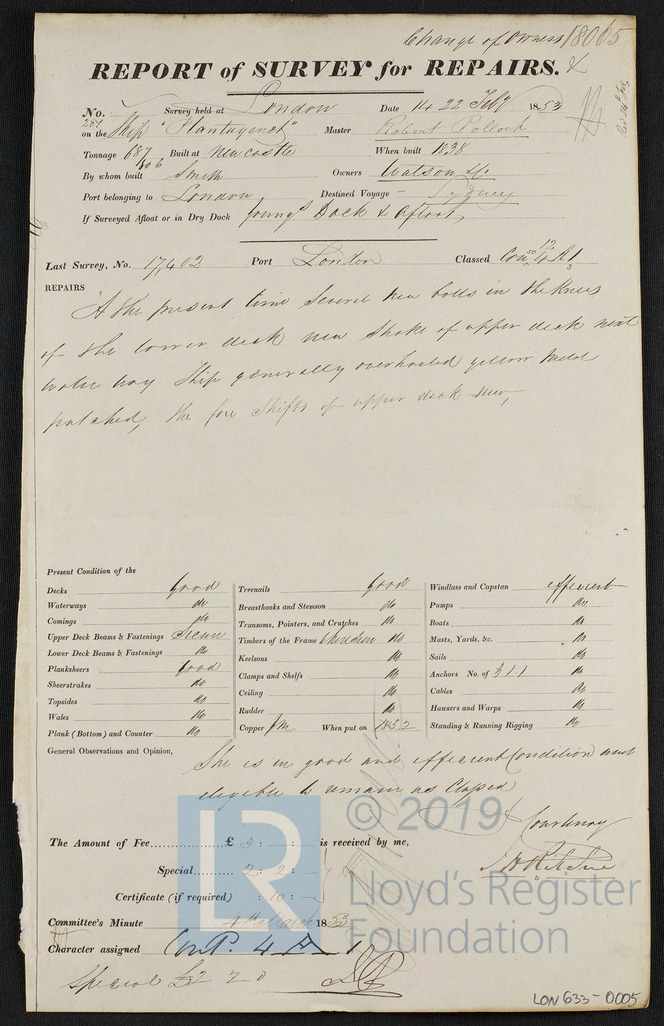 Change of Owners 18005
REPORT of SURVEY for REPAIRS.
No. 287 Survey held at London Date 14 22 Feby 1853
on the Ship "Plantagenet" Master Robert Pollock
Tonnage 687 806 Built at Newcastle When built 1838
By whom built Smith Owners Watson &c
Port belonging to London Destined Voyage - Sydney
If Surveyed Afloat or in Dry Dock Young's Dock & afloat
Last Survey, No. 17402 Port London Classed
REPAIRS
At the present time Several New bolts in the knees
of the lower deck new Strake of upper deck next
water way Ship generally overhauled yellow metal
patched, the fore Shifts of upper deck new,
Present Condition of the
Decks Good Treenails Good Windlass and Capstan efficient
Waterways do Breasthooks and Stemson do Pumps do
Comings do Transoms, Pointers, and Crutches do Boats do
Upper Deck Beams & Fastenings Secure Timbers of the Frame do Masts, Yards, &c. do
Lower Deck Beams & Fastenings do Keelsons do Sails do
Planksheers Good Clamps and Shelfs do Anchors No. of 311 do
Sheerstrakes do Ceiling do Cables do
Topsides do Rudder do Hawsers and Warps do
Wales do Copper YM When put on 1852 Standing & Running Rigging do
Plank (Bottom) and Counter do
General Observations and Opinion, She is in good and efficient Condition and
eligible to remain as Classed
Courtenay
The Amount of Fee £ 3 : : is received by me,
J H Ritchie
Special 2 : 2 :
Certificate (if required) : 10 :
Committee's Minute 4th March 1853
Character assigned Cont. 4 A 1
Special £2 2 0
LR © 2019
Lloyd's Register
Foundation
LON 633-0005